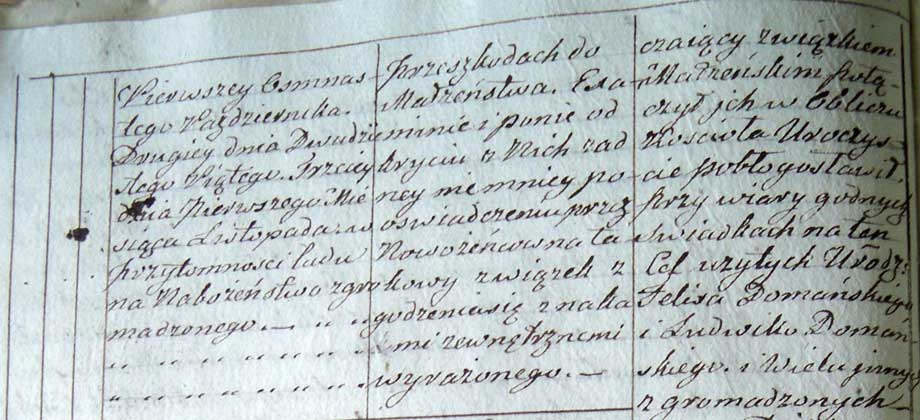 Pierwszey Osmnas
tego Października.
Drugiey dnia Dwudzie
stego Piątego. Trzeciey
dnia Pierwszego Mie
siąca Listopada w
przytomności ludu
na Nabożeństwo zgro
madzonego.
przeszkodach do
Małżeństwa. Exa
minie i po nie od
kryciu z Nich żad
ney niemniey po
oświadczeniu przez
Nowożeńcow na ta
kowy związek z
godzenia się znaka
mi zewnętrznemi
wyrażonego. —
czaiący związkiem
Małżeńskim połą
czył ich w Obliczu
Kościoła Uroczys
cie pobłogosławił,
przy wiary godnych
świadkach na ten
Cel użytych Urodz:
Felixa Domańskiego
i Ludwika Domań
skiego. i Wielu innych
zgromadzonych